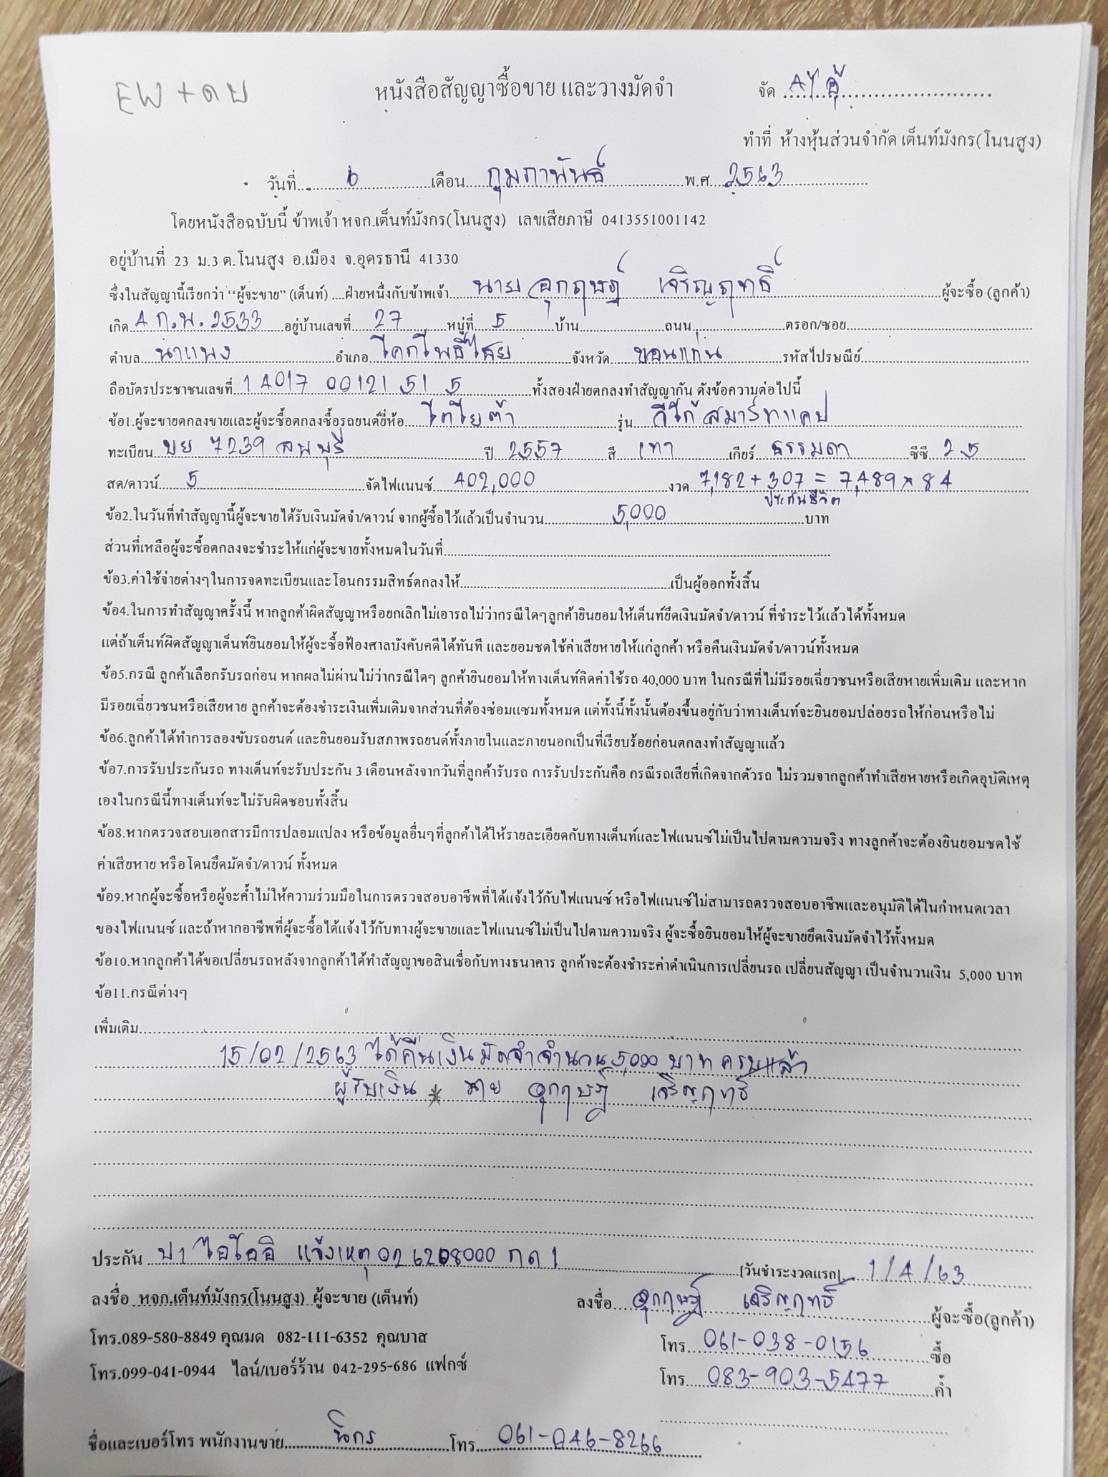 EW + ดบ
หนังสือสัญญาซื้อขาย และวางมัดจำ
จัด
ทำที่ ห้างหุ้นส่วนจำกัด เต็นท์มังกร(โนนสูง)
วันที่ 6 เดือน กุมภาพันธ์ พ.ศ. 2563
โดยหนังสือฉบับนี้ ข้าพเจ้า หจก.เต็นท์มังกร(โนนสูง) เลขเสียภาษี 0413551001142
อยู่บ้านที่ 23 ม.3 ต.โนนสูง อ.เมือง จ.อุดรธานี 41330
ซึ่งในสัญญานี้เรียกว่า “ผู้จะขาย” (เต็นท์) ....ฝ่ายหนึ่งกับข้าพเจ้า นาย อุกฤษฏ์ เจริญฤทธิ์ ผู้จะซื้อ (ลูกค้า)
เกิด 4 ก.พ. 2533 อยู่บ้านเลขที่ 27 หมู่ที่ 5 บ้าน ถนน ตรอก/ซอย
ตำบล นาแพง อำเภอ โคกโพธิ์ไชย จังหวัด ขอนแก่น รหัสไปรษณีย์
ถือบัตรประชาชนเลขที่ 1 4017 00121 51 5 ทั้งสองฝ่ายตกลงทำสัญญากัน ดังข้อความต่อไปนี้
ข้อ1.ผู้จะขายตกลงขายและผู้จะซื้อตกลงซื้อรถยนต์ยี่ห้อ โตโยต้า รุ่น วีโก้ สมาร์ทแคป
ทะเบียน บย 7239 ลพบุรี ปี 2557 สี เทา เกียร์ ธรรมดา ซีซี 2.5
สด/ดาวน์ 5 จัดไฟแนนซ์ 402,000 งวด 7,182 + 307 = 7,489 × 84
ประกันชีวิต
ข้อ2.ในวันที่ทำสัญญานี้ผู้จะขายได้รับเงินมัดจำ/ดาวน์ จากผู้ซื้อไว้แล้วเป็นจำนวน 5,000 บาท
ส่วนที่เหลือผู้จะซื้อตกลงจะชำระให้แก่ผู้จะขายทั้งหมดในวันที่
ข้อ3.ค่าใช้จ่ายต่างๆในการจดทะเบียนและโอนกรรมสิทธ์ตกลงให้ เป็นผู้ออกทั้งสิ้น
ข้อ4.ในการทำสัญญาครั้งนี้ หากลูกค้าผิดสัญญาหรือยกเลิกไม่เอารถไม่ว่ากรณีใดๆลูกค้ายินยอมให้เต็นท์ยึดเงินมัดจำ/ดาวน์ ที่ชำระไว้แล้วได้ทั้งหมด
แต่ถ้าเต็นท์ผิดสัญญาเต็นท์ยินยอมให้ผู้จะซื้อฟ้องศาลบังคับคดีได้ทันที และยอมชดใช้ค่าเสียหายให้แก่ลูกค้า หรือคืนเงินมัดจำ/ดาวน์ทั้งหมด
ข้อ5.กรณี ลูกค้าเลือกรับรถก่อน หากผลไม่ผ่านไม่ว่ากรณีใดๆ ลูกค้ายินยอมให้ทางเต็นท์คิดค่าใช้รถ 40,000 บาท ในกรณีที่ไม่มีรอยเฉี่ยวชนหรือเสียหายเพิ่มเติม และหาก
มีรอยเฉี่ยวชนหรือเสียหาย ลูกค้าจะต้องชำระเงินเพิ่มเติมจากส่วนที่ต้องซ่อมแซมทั้งหมด แต่ทั้งนี้ทั้งนั้นต้องขึ้นอยู่กับว่าทางเต็นท์จะยินยอมปล่อยรถให้ก่อนหรือไม่
ข้อ6.ลูกค้าได้ทำการลองขับรถยนต์ และยินยอมรับสภาพรถยนต์ทั้งภายในและภายนอกเป็นที่เรียบร้อยก่อนตกลงทำสัญญาแล้ว
ข้อ7.การรับประกันรถ ทางเต็นท์จะรับประกัน 3 เดือนหลังจากวันที่ลูกค้ารับรถ การรับประกันคือ กรณีรถเสียที่เกิดจากตัวรถ ไม่รวมจากลูกค้าทำเสียหายหรือเกิดอุบัติเหตุ
เองในกรณีนี้ทางเต็นท์จะไม่รับผิดชอบทั้งสิ้น
ข้อ8.หากตรวจสอบเอกสารมีการปลอมแปลง หรือข้อมูลอื่นๆที่ลูกค้าได้ให้รายละเอียดกับทางเต็นท์และไฟแนนซ์ไม่เป็นไปตามความจริง ทางลูกค้าจะต้องยินยอมชดใช้
ค่าเสียหาย หรือโดนยึดมัดจำ/ดาวน์ ทั้งหมด
ข้อ9.หากผู้จะซื้อหรือผู้จะค้ำไม่ให้ความร่วมมือในการตรวจสอบอาชีพที่ได้แจ้งไว้กับไฟแนนซ์ หรือไฟแนนซ์ไม่สามารถตรวจสอบอาชีพและอนุมัติได้ในกำหนดเวลา
ของไฟแนนซ์ และถ้าหากอาชีพที่ผู้จะซื้อได้แจ้งไว้กับทางผู้จะขายและไฟแนนซ์ไม่เป็นไปตามความจริง ผู้จะซื้อยินยอมให้ผู้จะขายยึดเงินมัดจำไว้ทั้งหมด
ข้อ10.หากลูกค้าได้ขอเปลี่ยนรถหลังจากลูกค้าได้ทำสัญญาขอสินเชื่อกับทางธนาคาร ลูกค้าจะต้องชำระค่าดำเนินการเปลี่ยนรถ เปลี่ยนสัญญา เป็นจำนวนเงิน 5,000 บาท
ข้อ11.กรณีต่างๆ
เพิ่มเติม
15/02/2563 ได้คืนเงินมัดจำจำนวน 5,000 บาท ครบแล้ว
ผู้รับเงิน * นาย อุกฤษฏ์ เจริญฤทธิ์
ประกัน ป1 ไอโออิ แจ้งเหตุ 02 6208000 กด 1 [วันชำระงวดแรก] 1/4/63
ลงชื่อ หจก.เต็นท์มังกร(โนนสูง) ผู้จะขาย (เต็นท์) ลงชื่อ อุกฤษฏ์ เจริญฤทธิ์ ผู้จะซื้อ(ลูกค้า)
โทร.089-580-8849 คุณมด 082-111-6352 คุณบาส โทร 061-038-0156 ซื้อ
โทร.099-041-0944 ไลน์/เบอร์ร้าน 042-295-686 แฟกซ์ โทร 083-903-5477 ค้ำ
ชื่อและเบอร์โทร พนักงานขาย นิกร โทร 061-046-8266